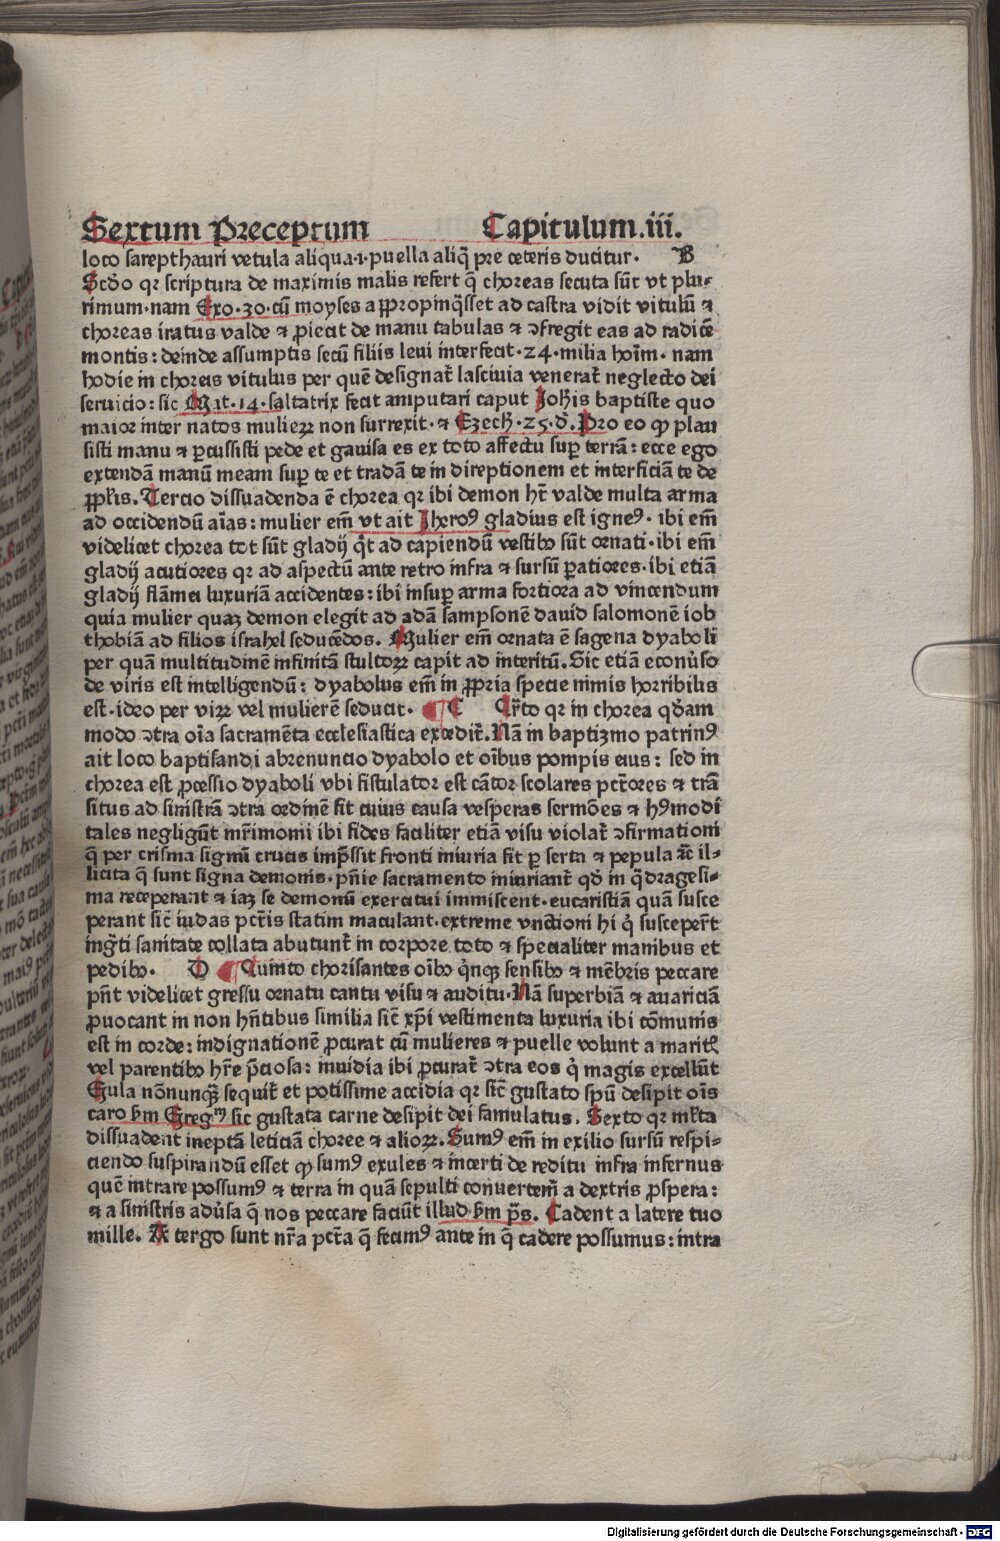 Sextum Preceptum Capitulum.iii.
loco sarepthauri vetula aliqua·i·puella aliq̄ pre ceteris ducitur· B
Scd̄o qꝛ scriptura de maximis malis refert q̄ choreas secuta sūt vt plu⸗
rimum·nam Exo·30·cū moyses appropinq̄sset ad castra vidit vitulū ⁊
choreas iratus valde ⁊ ꝓiecit de manu tabulas ⁊ ↄfregit eas ad radicē
montis: deinde assumptis secū filiis leui interfecit·24·milia hoīm· nam
hodie in choreis vitulus per quē designat̄ lasciuia venerat̄ neglecto dei
seruicio: sic Mat·14·saltatrix fecit amputari caput Joh̄is baptiste quo
maior inter natos mulieꝝ non surrexit·⁊ Ezech·25·d̄·Pro eo ꝙ plau
sisti manu ⁊ ꝑcussisti pede et gauisa es ex toto affectu suꝑ terrā: ecce ego
extendā manū meam suꝑ te et tradā te in direptionem et interficiā te de
ꝓpl̄is. Tercio dissuadenda ē chorea qꝛ ibi demon hꝫ valde multa arma
ad occidendū aīas: mulier em̄ vt ait Jheroꝰ gladius est igneꝰ· ibi em̄
videlicet chorea tot sūt gladij q̄t ad capiendū vestibꝰ sūt ornati·ibi em̄
gladij acutiores qꝛ ad aspectū ante retro infra ⁊ sursū ꝑatiores·ibi etiā
gladij flāmei luxuriā accidentes: ibi insuꝑ arma fortiora ad vincendum
quia mulier quaꝫ demon elegit ad adā sampsonē dauid salomonē iob
thobiā ad filios israhel seducēdos. Mulier em̄ ornata ē sagena dyaboli
per quā multitudinē infinitā stultoꝝ capit ad interitū. Sic etiā econ̄uso
de viris est intelligendū: dyabolus em̄ in ꝓpria specie nimis horribilis
est·ideo per viꝝ vel mulierē seducit· C Q̄rto qꝛ in chorea qd̄am
modo ↄtra oīa sacramēta ecclesiastica excedit̄. Nā in baptizmo patrinꝰ
ait loco baptisandi abrenuncio dyabolo et oībus pompis eius: sed in
chorea est ꝓcessio dyaboli vbi fistulator est cātor scolares pct̄ores ⁊ trā
situs ad sinistrā ↄtra ordinē fit cuius causa vesperas sermōes ⁊ hꝰmodi
tales negligūt mr̄imonii ibi fides faciliter etiā visu violat̄ ↄfirmationi
q̄ per crisma signū crucis imp̄ssit fronti iniuria fit ꝑ serta ⁊ pepula ⁊c̄ il⸗
licita q̄ sunt signa demonis·pn̄ie sacramento iniuriant̄ qd̄ in q̄dragesi⸗
ma receperant ⁊ iaꝫ se demonū exercitui immiscent·eucaristiā quā susce
perant sic̄ iudas pct̄is statim maculant·extreme vnctioni hi q̄ suscepert̄
ing̈ti sanitate collata abutunt̄ in corpore toto ⁊ specialiter manibus et
pedibꝰ· D Quinto chorisantes oībꝰ q̄nqꝫ sensibꝰ ⁊ mēbris peccare
pn̄t videlicet gressu ornatu cantu visu ⁊ auditu·Nā superbiā ⁊ auariciā
ꝓuocant in non hn̄tibus similia sic̄ xp̄i vestimenta luxuria ibi cōmunis
est in corde: indignationē ꝓcurat cū mulieres ⁊ puelle volunt a maritꝭ
vel parentibꝰ hr̄e p̄ciosa: inuidia ibi ꝓcurat̄ ↄtra eos q̄ magis excellūt
Gula nōnunqꝫ sequit̄ et potissime accidia qꝛ sic̄ gustato spū desipit oīs
caro s̄m Gregꝫ sic gustata carne desipit dei famulatus. Sexto qꝛ ml̄ta
dissuadent ineptā leticiā choree ⁊ alioꝝ. Sumꝰ em̄ in exilio sursū respi⸗
ciendo suspirandū esset ꝙ sumꝰ exules ⁊ incerti de reditu infra infernus
quē intrare possumꝰ ⁊ terra in quā sepulti conuertem̄ a dextris ꝓspera:
⁊ a sinistris adūsa q̄ nos peccare faciūt illud s̄m p̄s. Cadent a latere tuo
mille. A tergo sunt nr̄a pct̄a q̄ fecimꝰ ante in q̄ cadere possumus: intra
Digitalisierung gefördert durch die Deutsche Forschungsgemeinschaft · DFG